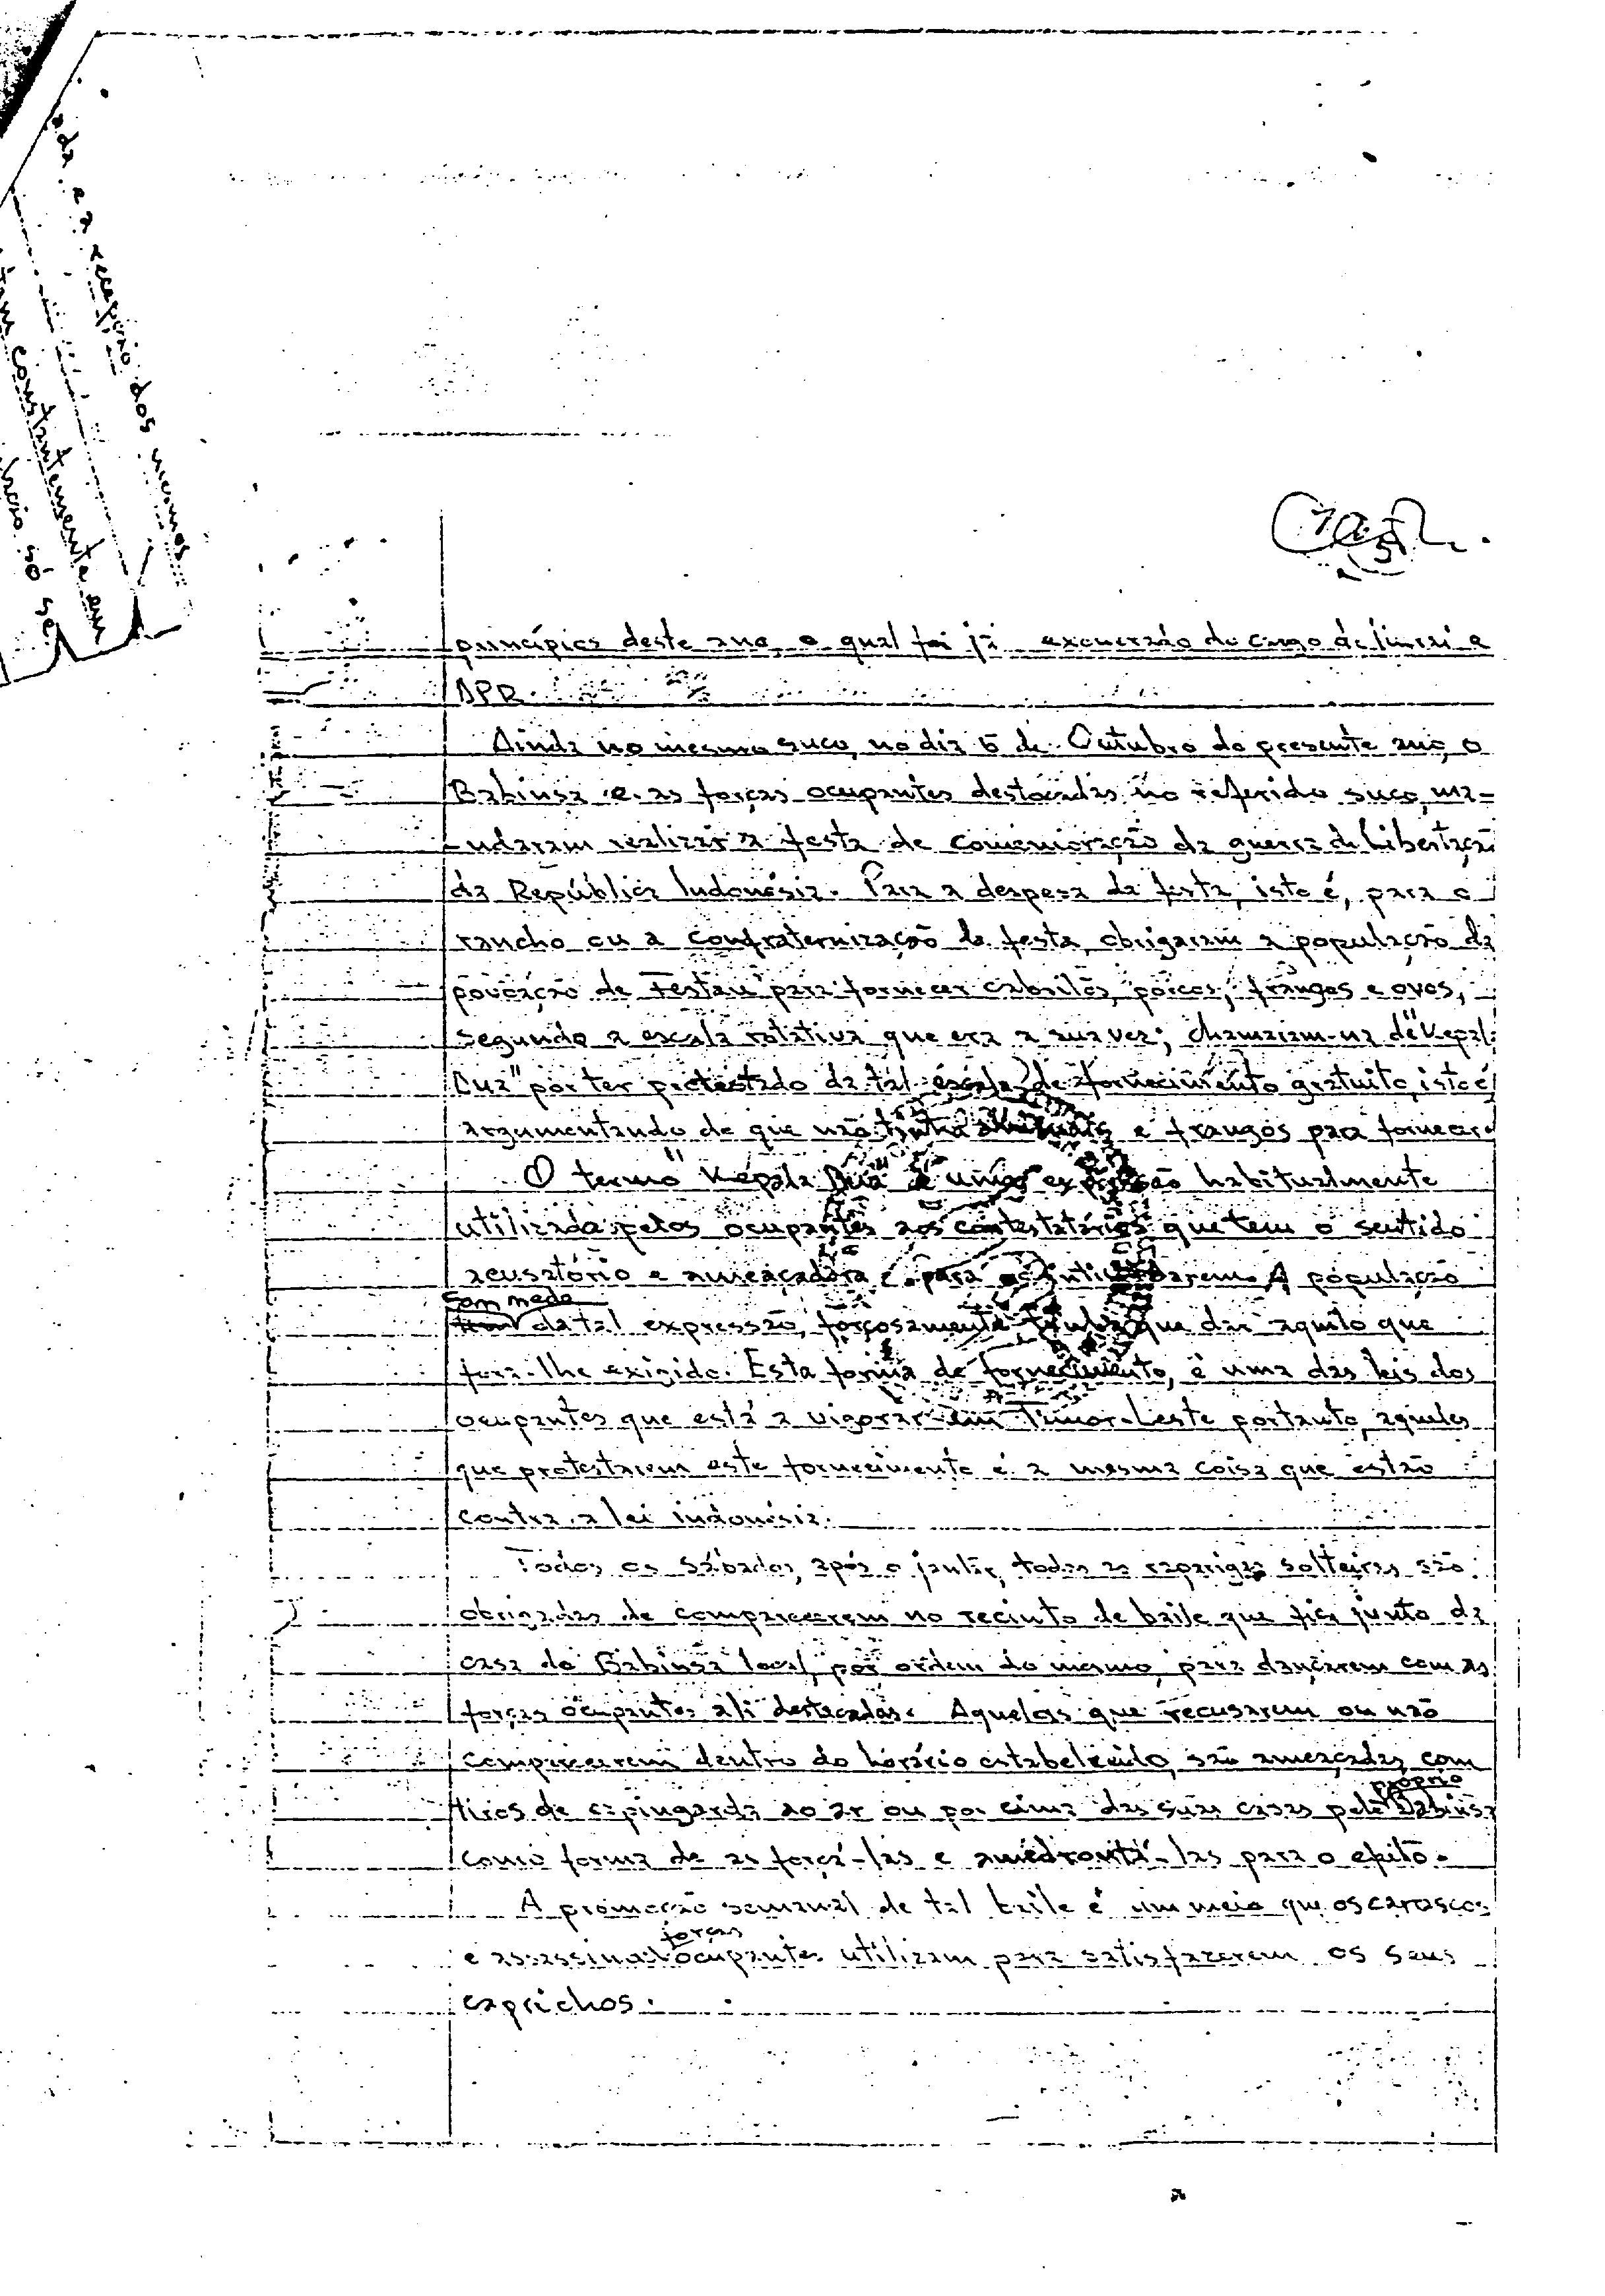 ada e a recepção dos mesmos
constantemente em
só se
princípios deste ano, o qual foi já exonerado do cargo de liurai e
DPR.
Ainda no mesmo suco, no dia 5 de Outubro do presente ano, o
Babinsa e as forças ocupantes destacadas no referido suco, ma-
-ndaram realizar a festa de comemoração da guerra de Libertação
da República Indonésia. Para a despesa da festa, isto é, para o
rancho ou a confraternização da festa, obrigaram a população da
povoação de para fornecer cabritos, porcos, frangos e ovos,
segundo a escala rotativa que era a sua vez; chamaram-na de "Kepala
Dua" por ter protestado da tal escala de fornecimento gratuito, isto é,
argumentando de que não tinha animais e frangos para fornecer.
O termo "Kepala Dua" é uma expressão habitualmente
utilizada pelos ocupantes aos contestatários que tem o sentido
acusatório e ameaçadora e para os intimidarem. A população
com medo
da tal expressão, forçosamente tinha que dar aquilo que
fora-lhe exigido. Esta forma de fornecimento, é uma das leis dos
ocupantes que está a vigorar em Timor-Leste portanto, aqueles
que protestarem este fornecimento é a mesma coisa que estão
contra a lei indonésia.
Todos os sábados, após o jantar, todas as raparigas solteiras são
obrigadas de comparecerem no recinto de baile que fica junto da
casa do Babinsa local, por ordem do mesmo, para dançarem com as
forças ocupantes ali destacadas. Aquelas que recusarem ou não
comparecerem dentro do horário estabelecido, são ameaçadas com
próprio
tiros de espingarda ao ar ou por cima das suas casas pelo Babinsa
como forma de as forçá-las e amedrontá-las para o efeito.
A promoção semanal de tal baile é um meio que os carrascos
forças
e assassinas ocupantes utilizam para satisfazerem os seus
caprichos.